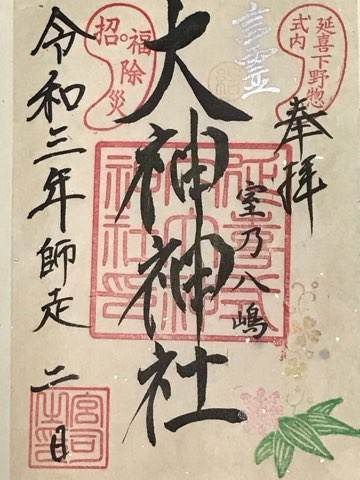 延喜下野惣
式内
奉拝
言霊
室乃八嶋
大神神社
招福除災
令和三年師走二日
宮司之印